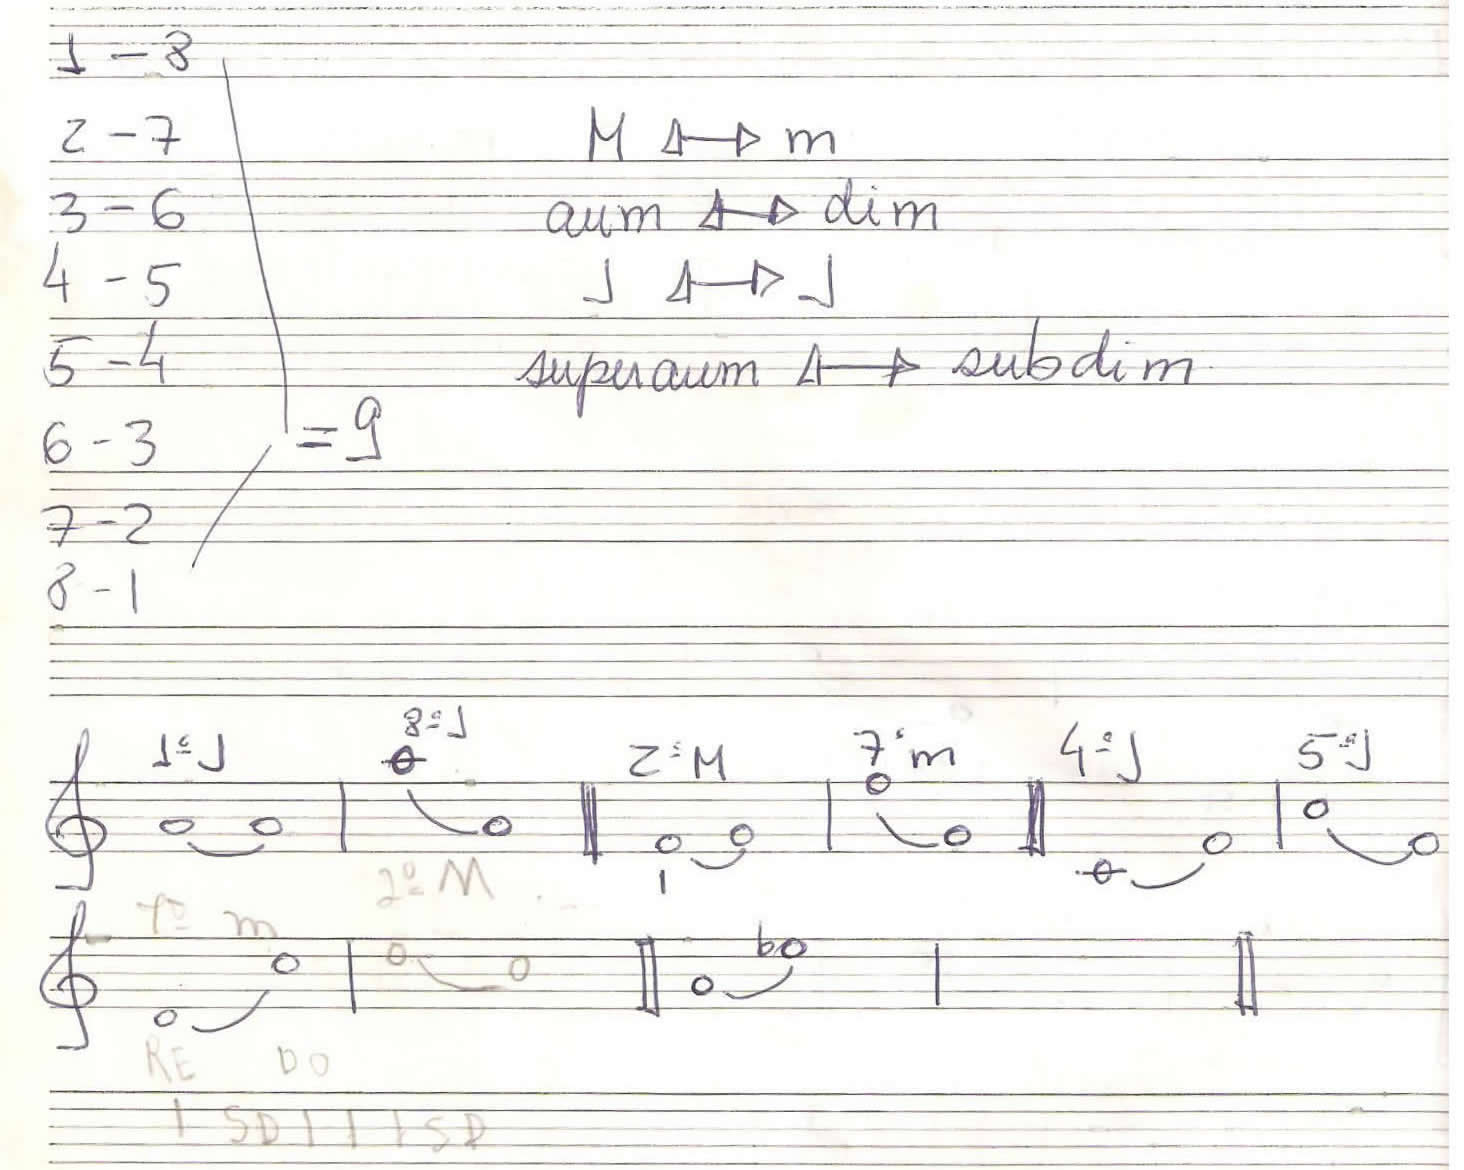 1 - 8
2 - 7
3 - 6
4 - 5
5 - 4
6 - 3
7 - 2
8 - 1
= 9
M ↔ m
aum ↔ dim
J ↔ J
superaum ↔ subdim
1ª J 8ª J 2ª M 7ª m 4ª J 5ª J
1
7ª m 2ª M
b
RE DO
1 SD 1 1 1 SD